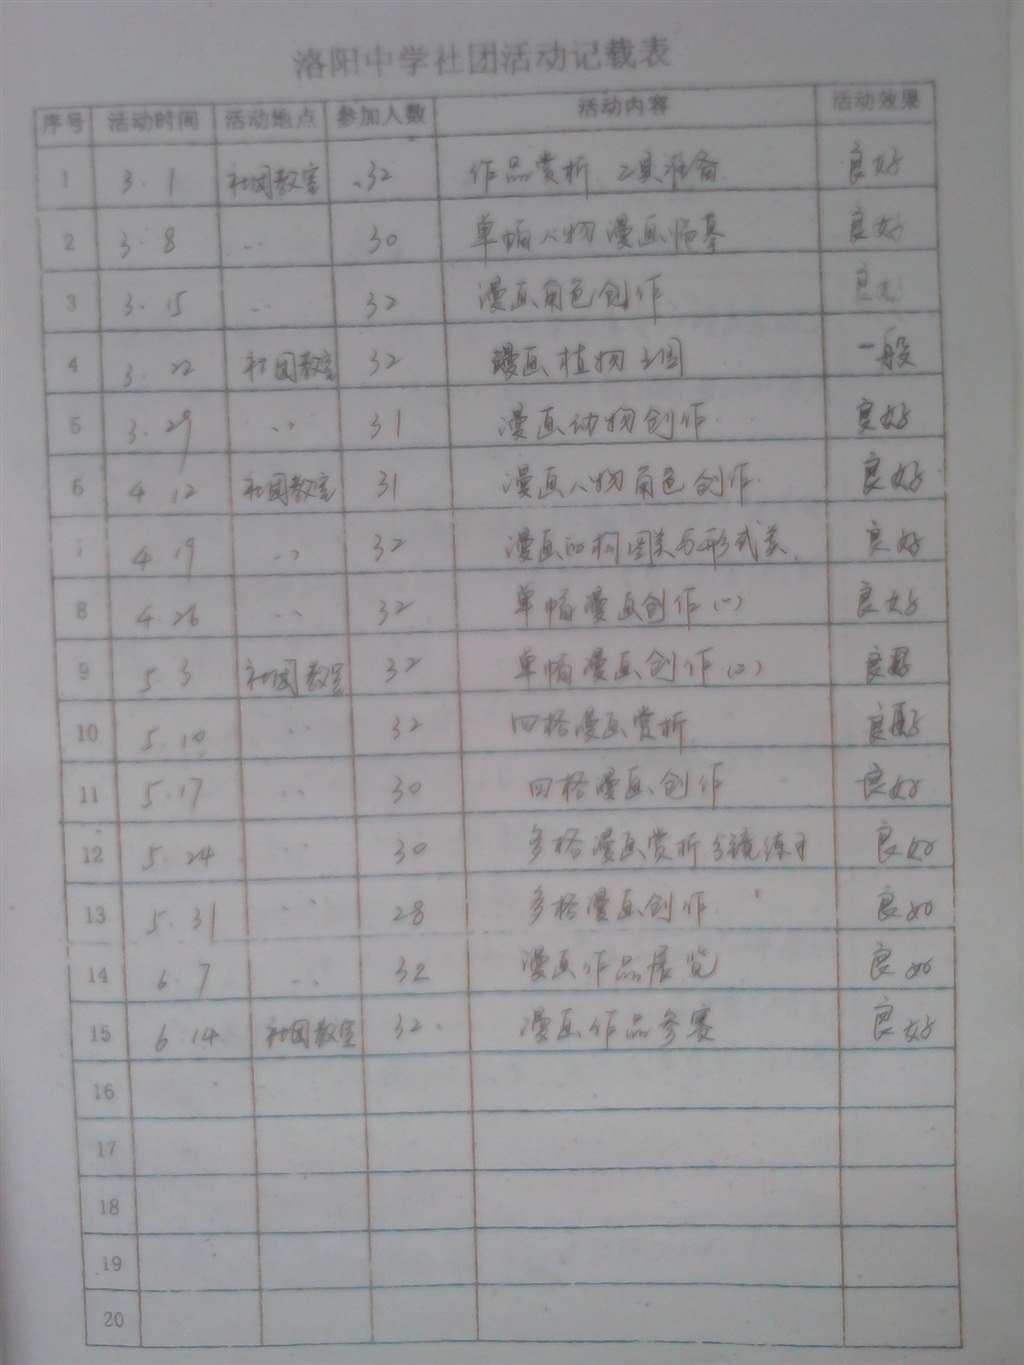 洛阳中学社团活动记载表
序号 活动时间 活动地点 参加人数 活动内容 活动效果
1 3.1 社团教室 32 作品赏析 工具准备 良好
2 3.8 ‥ 30 单幅人物漫画临摹 良好
3 3.15 ‥ 32 漫画角色创作 良好
4 3.22 社团教室 32 漫画植物 一般
5 3.29 ‥ 31 漫画动物创作 良好
6 4.12 社团教室 31 漫画人物角色创作 良好
4.19 ‥ 32 漫画的构图 与形式美 良好
8 4.26 ‥ 32 单幅漫画创作(一) 良好
9 5.3 社团教室 32 单幅漫画创作(二) 良好
10 5.10 ‥ 32 四格漫画赏析 良好
11 5.17 ‥ 30 四格漫画创作 良好
12 5.24 ‥ 30 多格漫画赏析 分镜练习 良好
13 5.31 ‥ 28 多格漫画创作 良好
14 6.7 ‥ 32 漫画作品展览 良好
15 6.14 社团教室 32 漫画作品参赛 良好
16
17
18
19
20